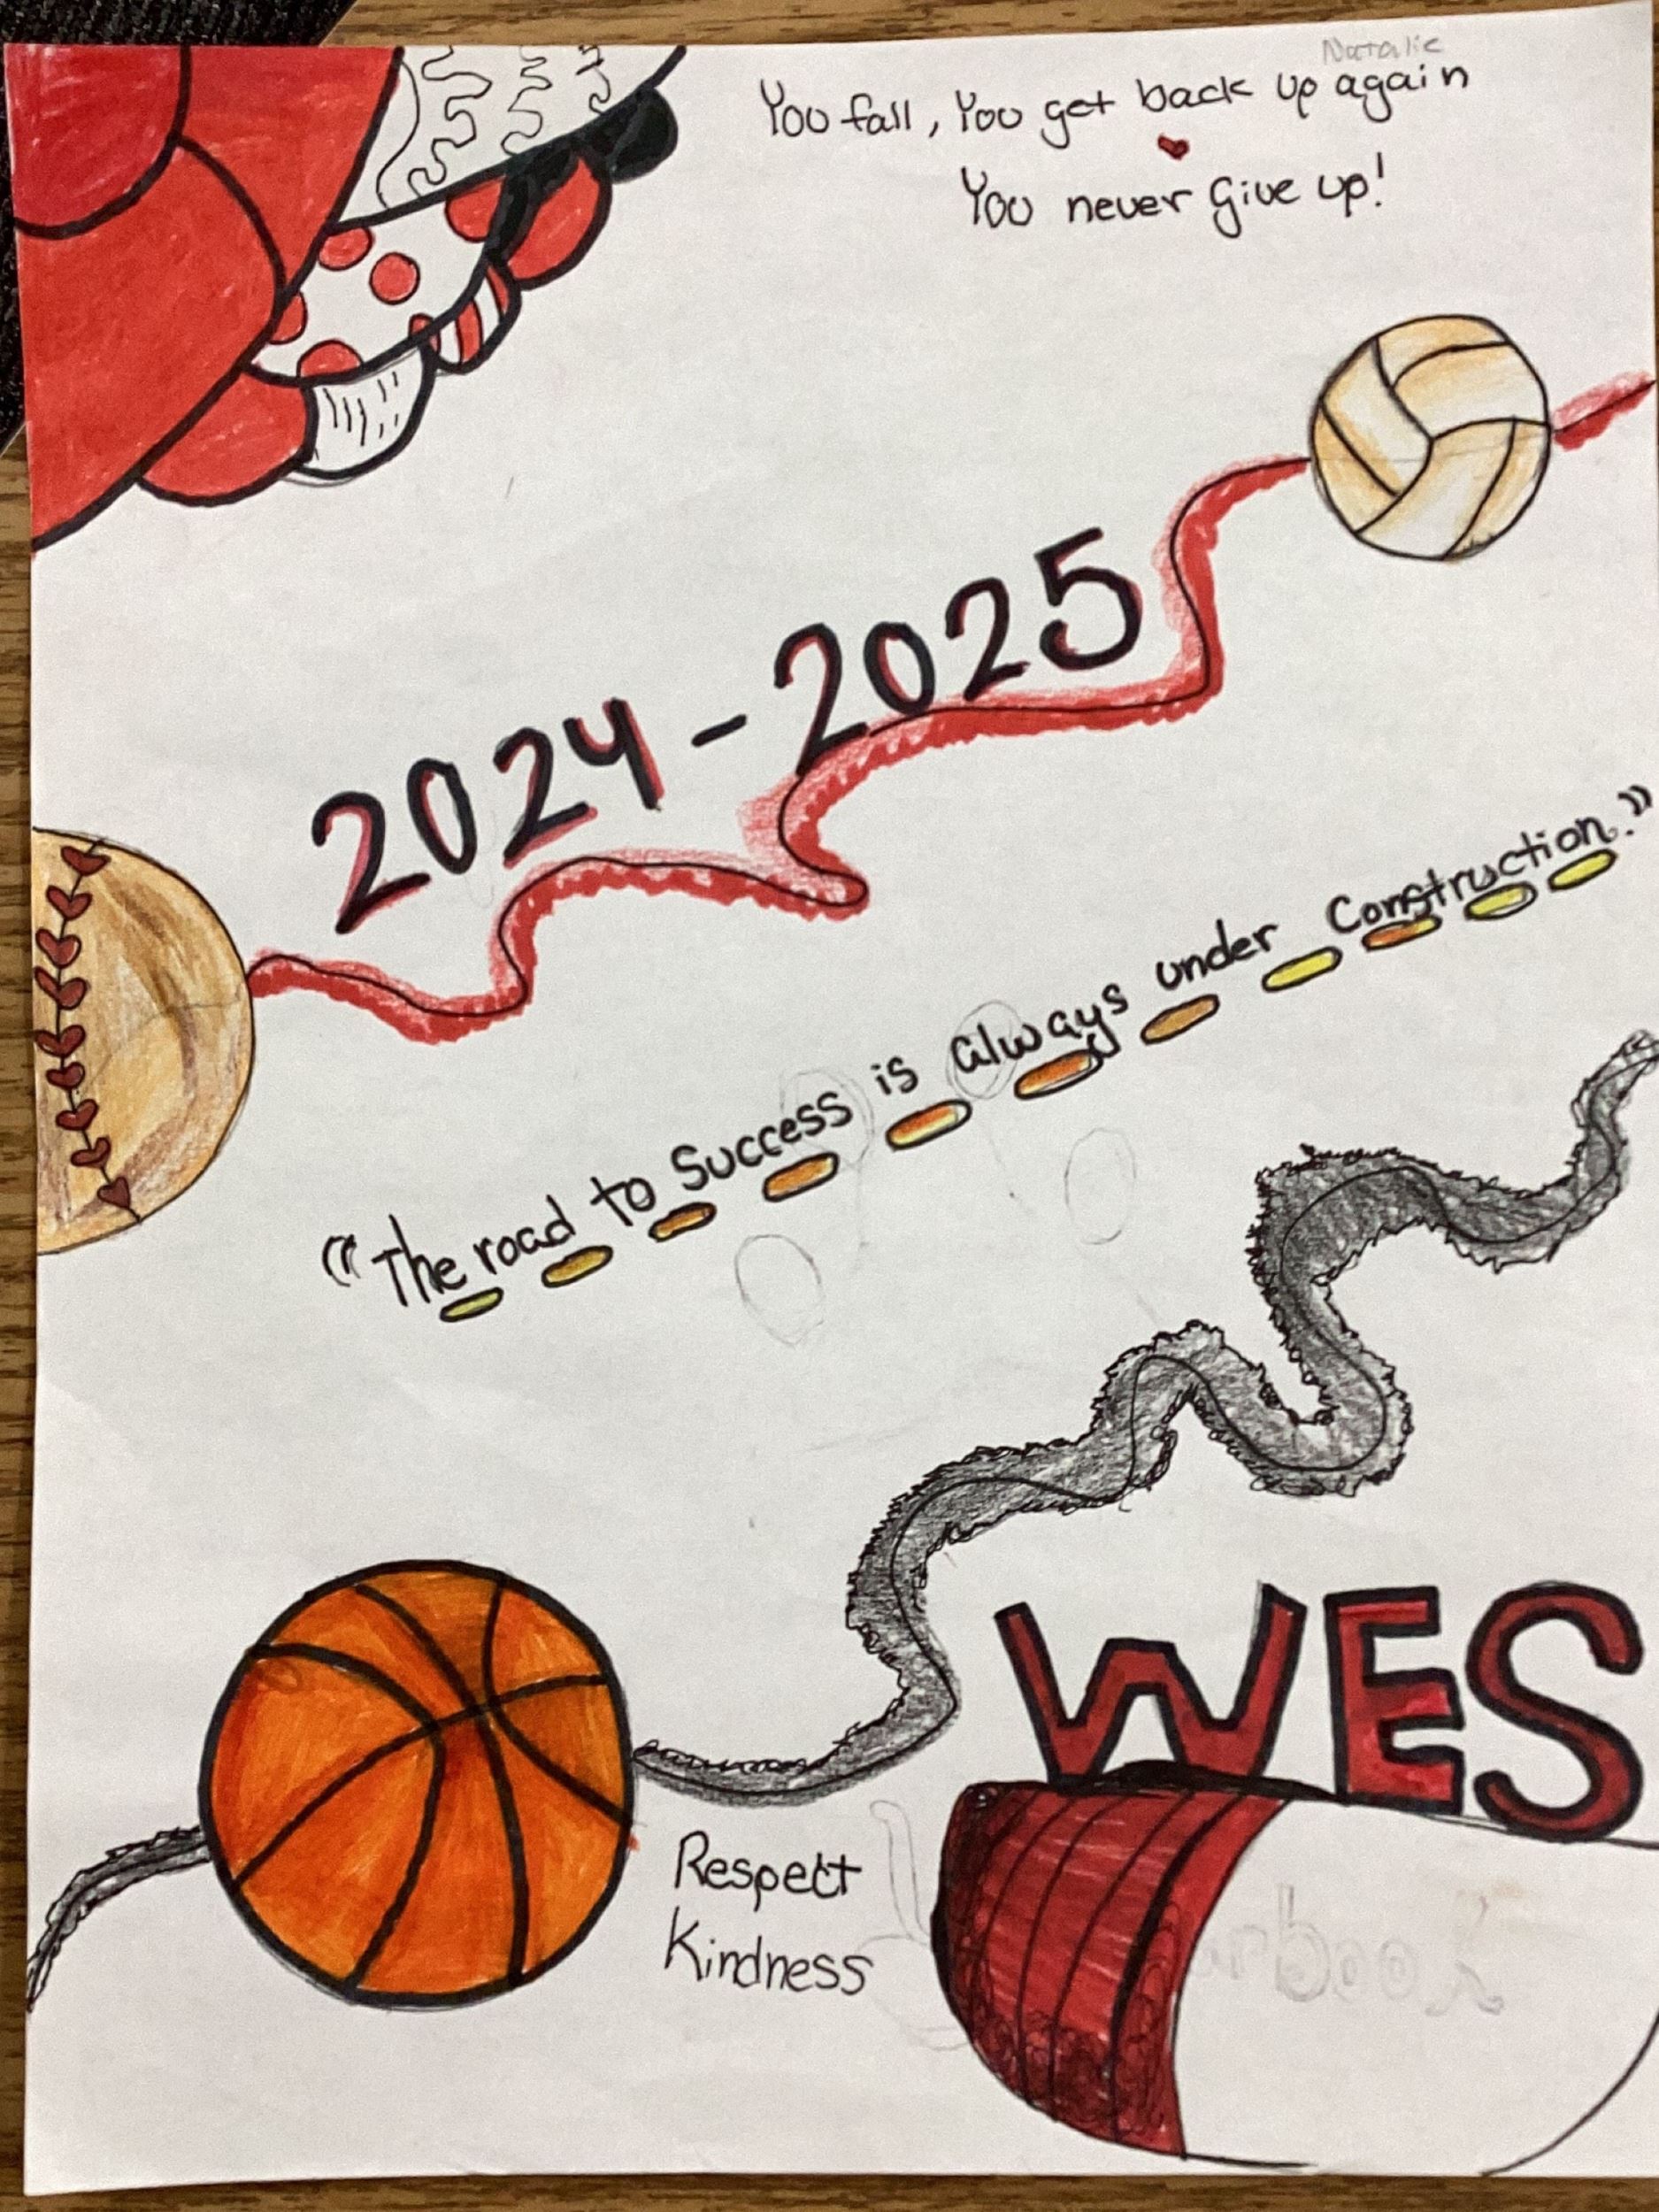 Natalie
You fall, You get back up again
You never Give up!
2024-2025
"The road to Success is always under Construction."
WES
Respect
Kindness